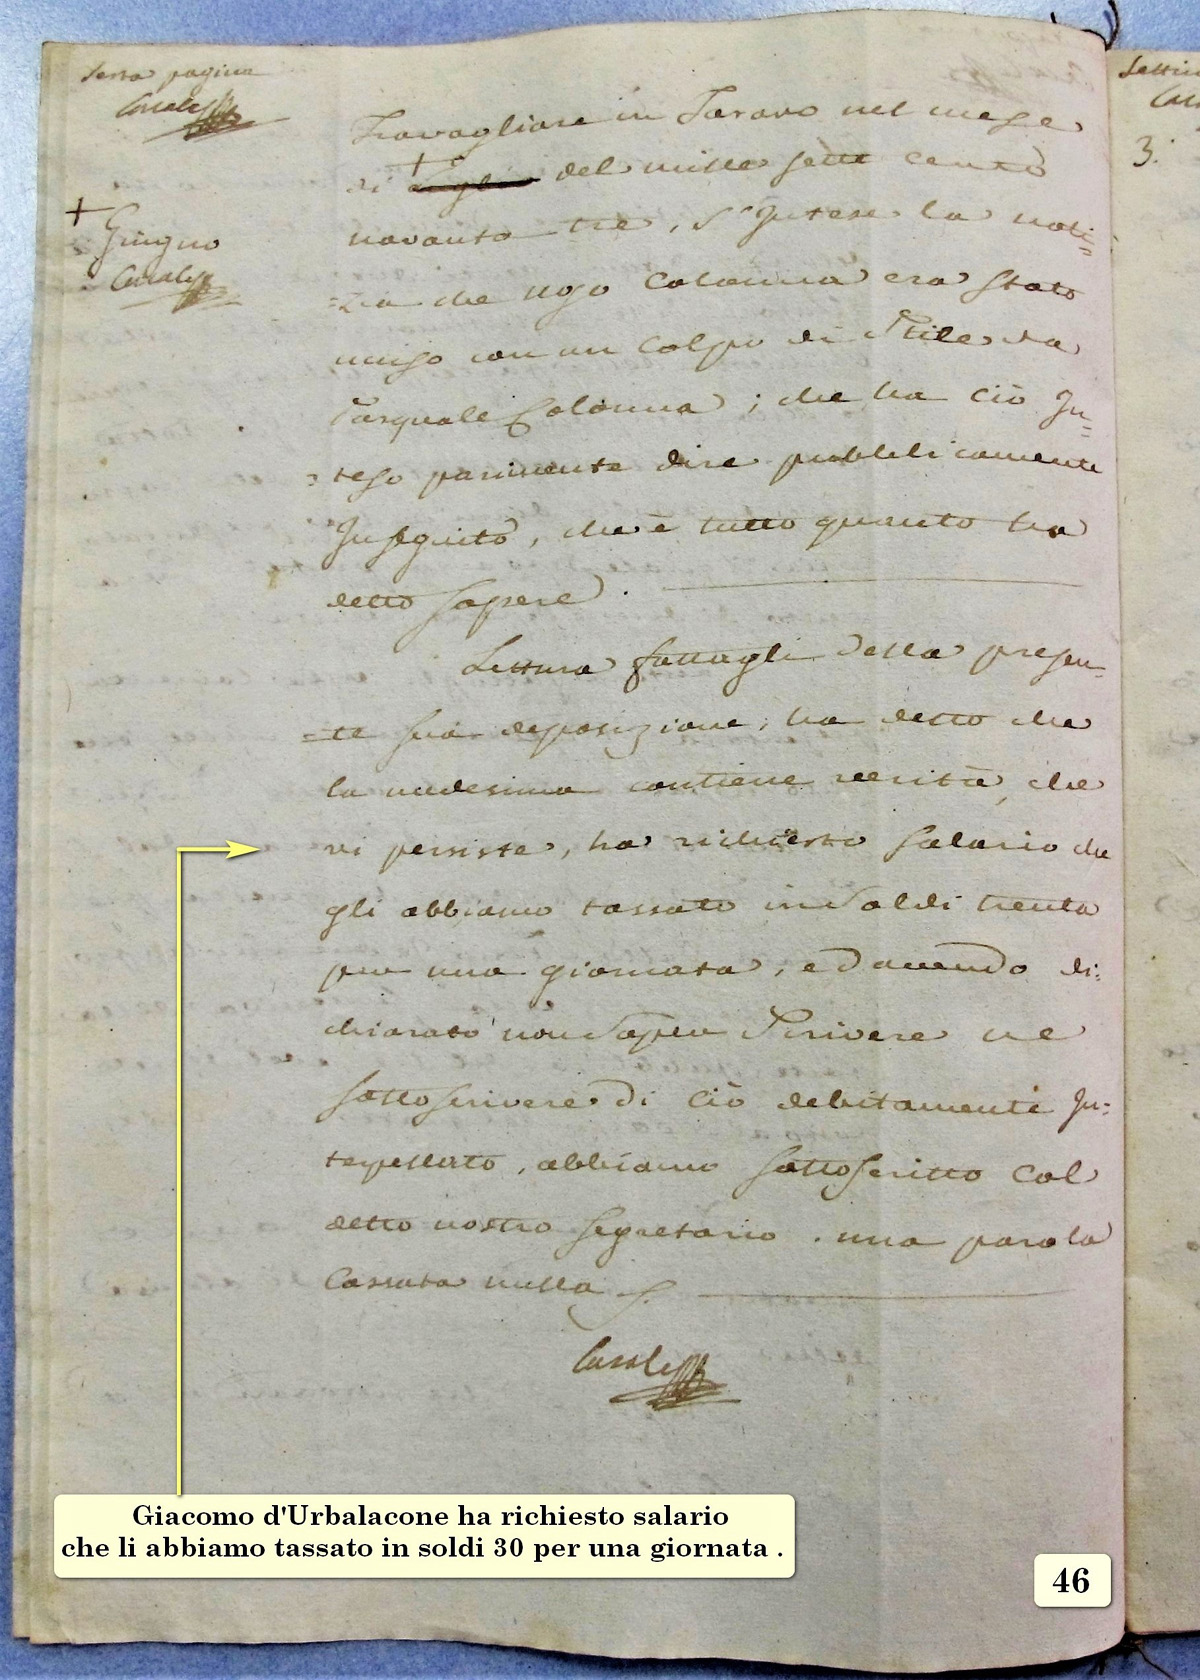 Sesta pagina
Casale
Travagliare in Taravo nel mese
di + Luglio del mille sette cento
+ Giugno
Casale
novanta tre, s'Intese la noti=
=zia che Ugo Colonna era stato
uciso con un colpo di Stile da
Pasquale Colonna ; che ha ciò In=
=teso parimente dire pubblicamente
In seguito, che è tutto quanto ha
detto sapere .
Lettura fattagli della presen=
=te sua deposizione, ha detto che
la medesima contiene verità, che
vi persiste, ha richiesto salario che
gli abbiamo tassato in Soldi trenta
per una giornata, ed avendo di=
chiarato non Saper Scrivere ne
sottoscrivere di ciò debitamente In=
terpellato, abbiamo sottoscritto col
detto nostro segretario . una parola
Cassata nulla
Casale
Settim
Cas
3.
Giacomo d'Urbalacone ha richiesto salario
che li abbiamo tassato in soldi 30 per una giornata .
46